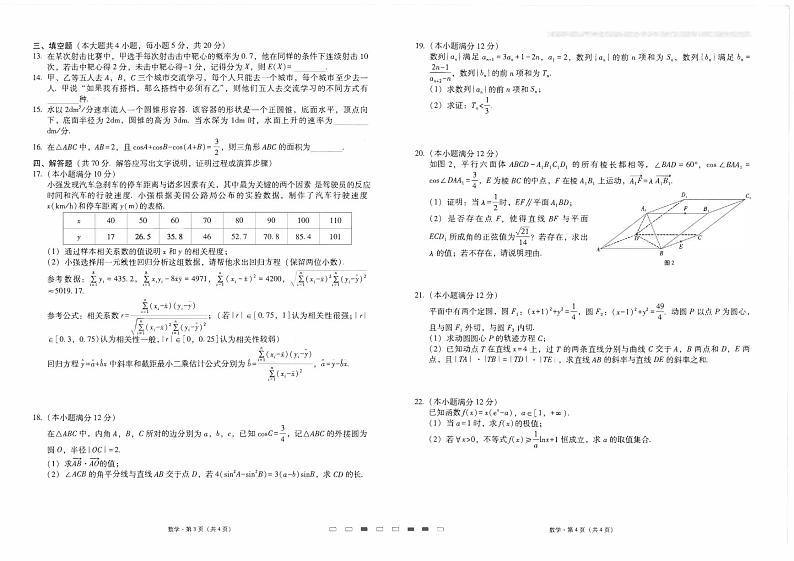 三、填空题（本大题共4小题，每小题5分，共20分）
13. 在某次射击比赛中，甲选手每次射击击中靶心的概率为0.7，他在同样的条件下连续射击10
次，若击中靶心得2分，未击中靶心得-1分，记得分为X，则E(X)=________.
14. 甲、乙等五人去A，B，C三个城市交流学习，每个人只能去一个城市，每个城市至少去一
人. 甲说“如果我有搭档，那么搭档中必须有乙”，则他们五人去交流学习的不同方式有
________种.
15. 水以2dm³/分速率流入一个圆锥形容器. 该容器的形状是一个正圆锥，底面水平，顶点向
下，底面半径为2dm，圆锥的高为3dm. 当水深为1dm时，水面上升的速率为________
dm/分.
16. 在△ABC中，AB=2，且cosA+cosB-cos(A+B)=3/2，则三角形ABC的面积为________.
四、解答题（共70分. 解答应写出文字说明，证明过程或演算步骤）
17.（本小题满分10分）
小强发现汽车急刹车的停车距离与诸多因素有关，其中最为关键的两个因素是驾驶员的反应
时间和汽车的行驶速度. 小强根据美国公路局公布的实验数据，制作了汽车行驶速度
x(km/h)和停车距离y(m)的表格.
x 40 50 60 70 80 90 100 110
y 17 26.5 35.8 46 52.7 70.8 85.4 101
（1）通过样本相关系数的值说明x和y的相关程度；
（2）小强选择用一元线性回归分析这组数据，请帮他求出回归方程（保留两位小数）.
参考数据：∑yᵢ=435.2，∑xᵢyᵢ-8x̄ȳ=4971，∑(xᵢ-x̄)²=4200，√(∑(xᵢ-x̄)²∑(yᵢ-ȳ)²)
≈5019.17.
参考公式：相关系数r=∑(xᵢ-x̄)(yᵢ-ȳ)/√(∑(xᵢ-x̄)²∑(yᵢ-ȳ)²)；（若|r|∈[0.75，1]认为相关性很强；|r|
∈[0.3，0.75)认为相关性一般，|r|∈[0，0.25]认为相关性较弱）
回归方程ŷ=â+b̂x中斜率和截距最小二乘估计公式分别为b̂=∑(xᵢ-x̄)(yᵢ-ȳ)/∑(xᵢ-x̄)²，â=ȳ-b̂x̄.
18.（本小题满分12分）
在△ABC中，内角A，B，C所对的边分别为a，b，c，已知cosC=3/4，记△ABC的外接圆为
圆O，半径|OC|=2.
（1）求AB·AO的值；
（2）∠ACB的角平分线与直线AB交于点D，若4(sin²A-sin²B)=3(a-b)sinB，求CD的长.
数学·第3页（共4页）
19.（本小题满分12分）
数列{aₙ}满足aₙ₊₁=3aₙ+1-2n，a₁=2，数列{aₙ}的前n项和为Sₙ，数列{bₙ}满足bₙ=
(2n-1)/(aₙ₊₂-n)，数列{bₙ}的前n项和为Tₙ.
（1）求数列{aₙ}的前n项和Sₙ；
（2）求证：Tₙ<1/3.
20.（本小题满分12分）
如图2，平行六面体ABCD-A₁B₁C₁D₁的所有棱长都相等，∠BAD=60°，cos∠BAA₁=
cos∠DAA₁=3/4，E为棱BC的中点，F在棱A₁B₁上运动，A₁F=λA₁B₁.
（1）证明：当λ=1/2时，EF∥平面A₁BD；
（2）是否存在点F，使得直线BF与平面
ECD₁所成角的正弦值为√21/14？若存在，求出
λ的值；若不存在，请说明理由.
图2
21.（本小题满分12分）
平面中有两个定圆，圆F₁：(x+1)²+y²=1/4，圆F₂：(x-1)²+y²=49/4. 动圆P以点P为圆心，
且与圆F₁外切，与圆F₂内切.
（1）求动圆圆心P的轨迹方程C；
（2）已知动点T在直线x=4上，过T的两条直线分别与曲线C交于A，B两点和D，E两
点，且|TA|·|TB|=|TD|·|TE|，求直线AB的斜率与直线DE的斜率之和.
22.（本小题满分12分）
已知函数f(x)=x(eˣ-a)，a∈[1，+∞).
（1）当a=1时，求f(x)的极值；
（2）若∀x>0，不等式f(x)≥(1/a)lnx+1恒成立，求a的取值集合.
数学·第4页（共4页）